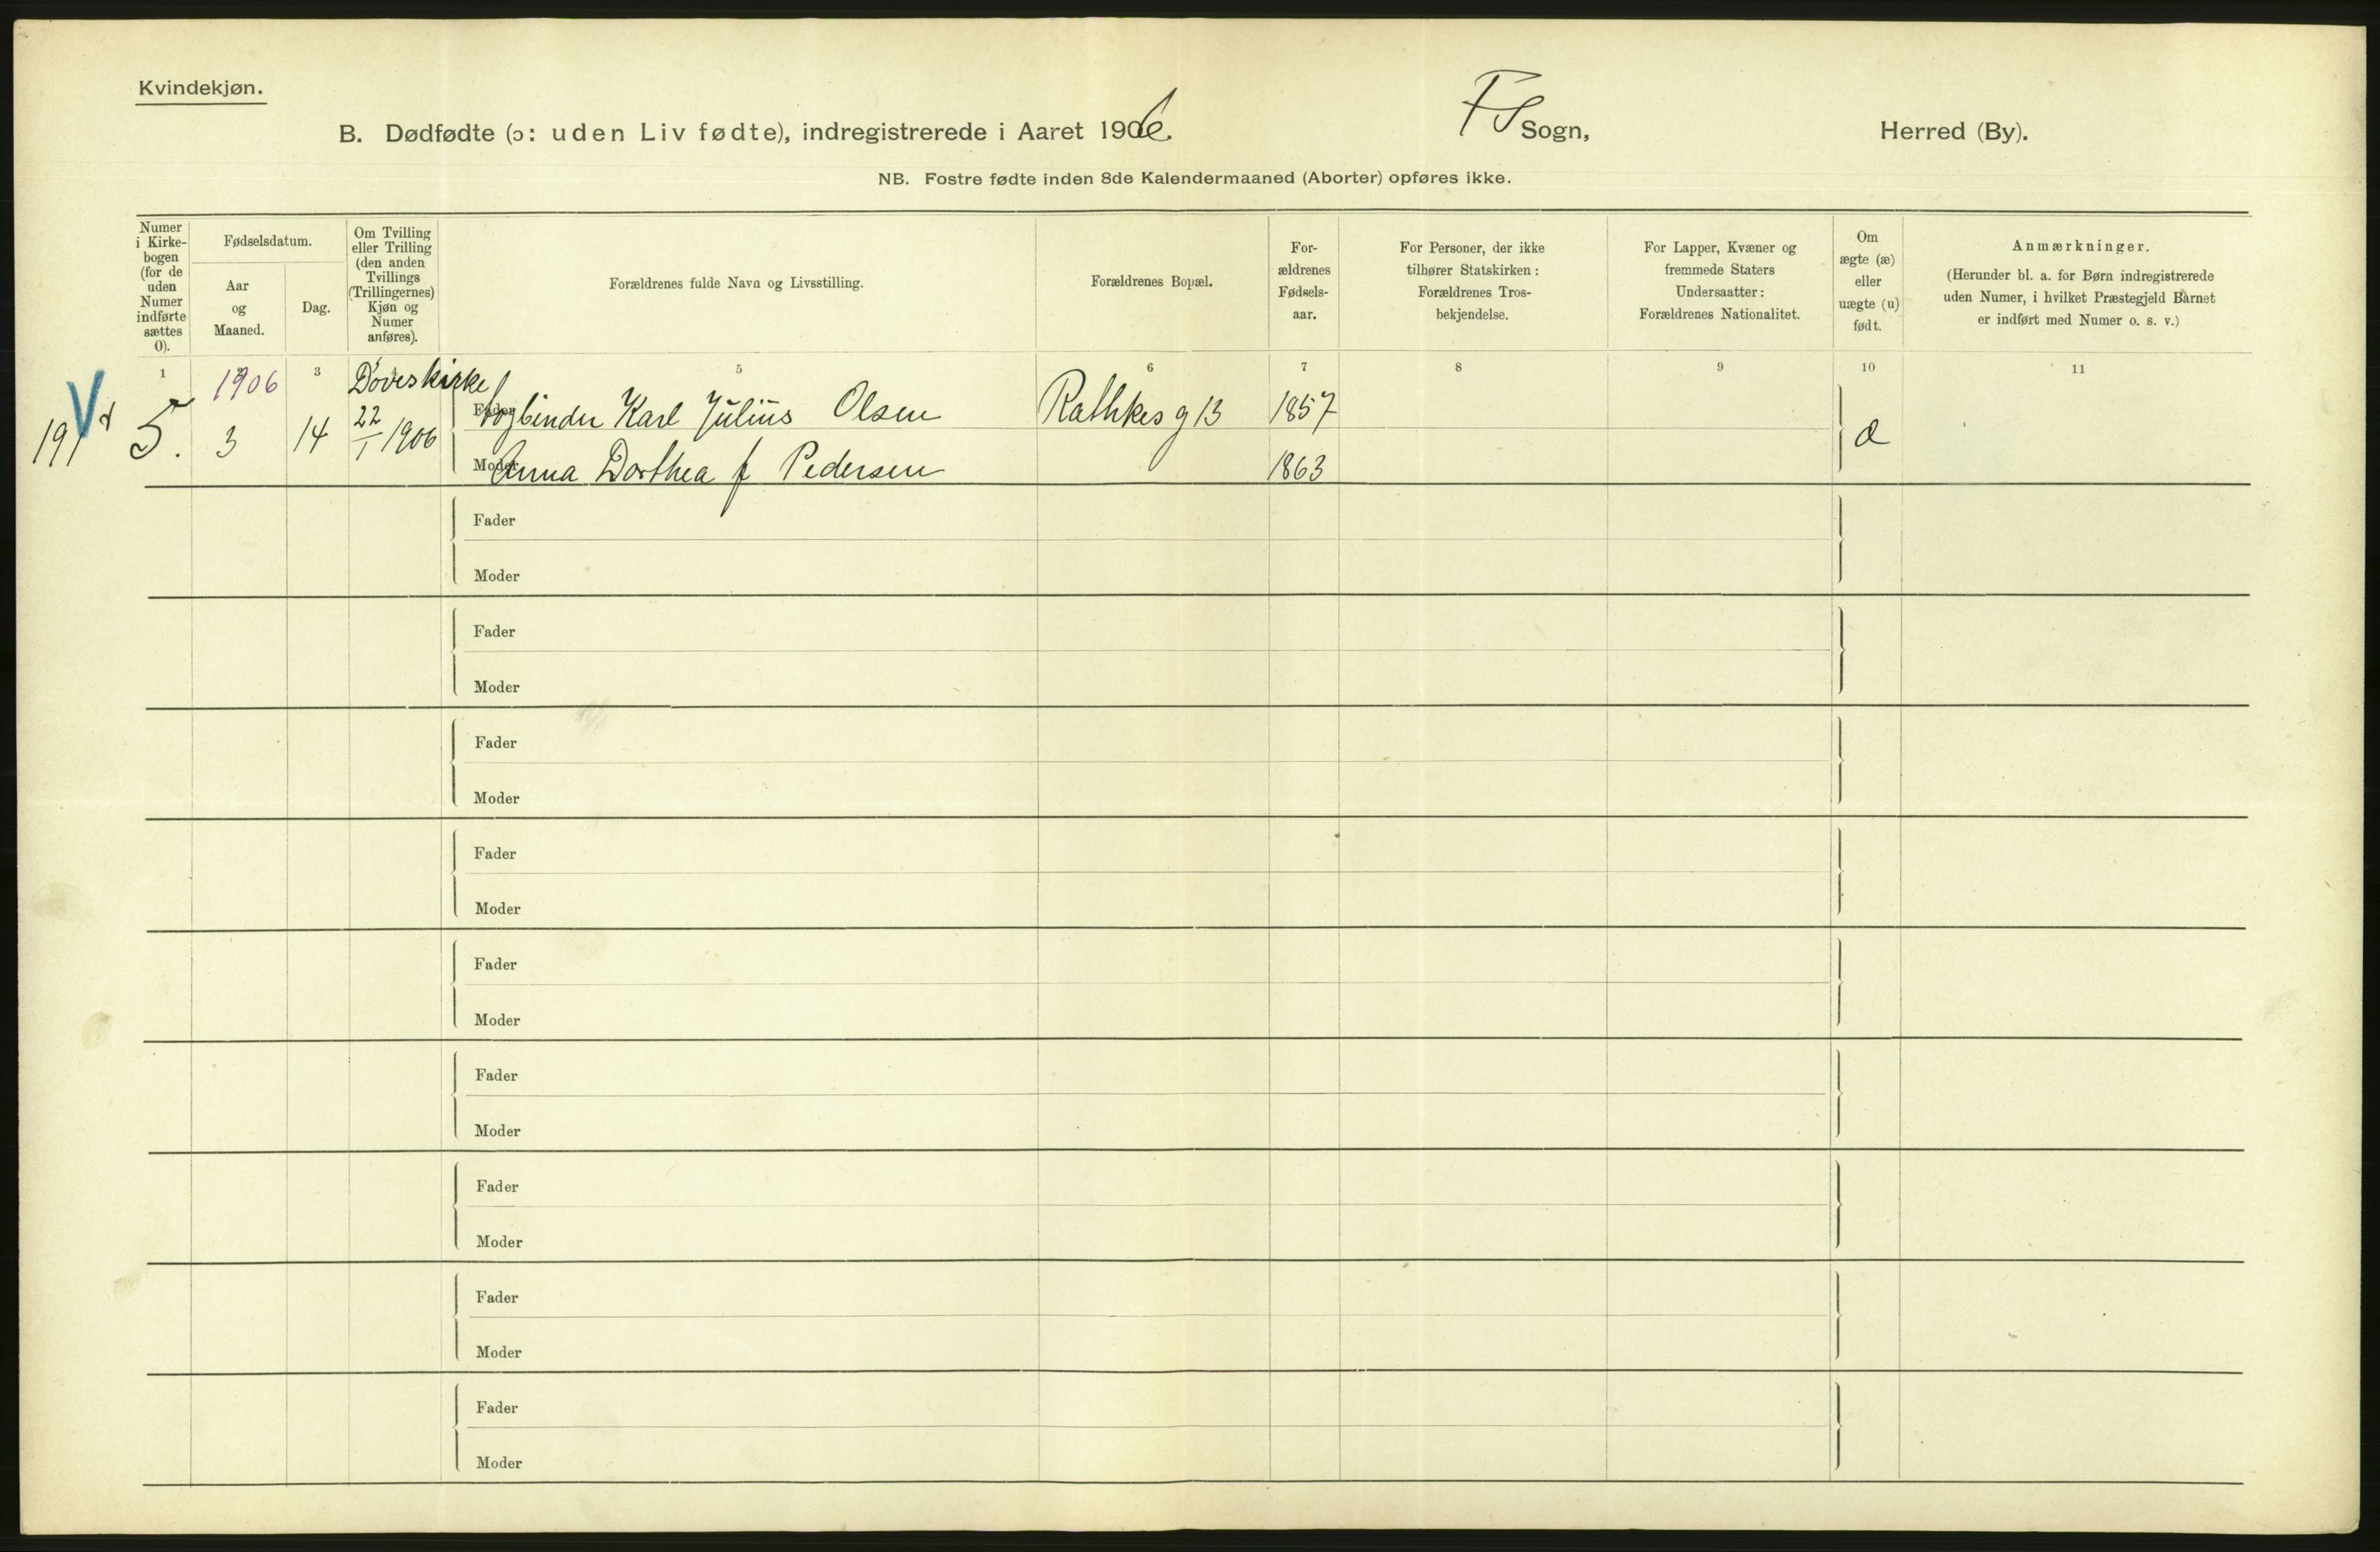 Kvindekjøn.
B. Dødfødte (ɔ: uden Liv fødte), indregistrerede i Aaret 1906. FS Sogn, Herred (By).
NB. Fostre fødte inden 8de Kalendermaaned (Aborter) opføres ikke.
Numer
i Kirke-
bogen
(for de
uden
Numer
indførte
sættes
0).
Fødselsdatum.
Aar
og
Maaned.
Dag.
Om Tvilling
eller Trilling
(den anden
Tvillings
(Trillingernes)
Kjøn og
Numer
anføres).
Forældrenes fulde Navn og Livsstilling.
Forældrenes Bopæl.
For-
ældrenes
Fødsels-
aar.
For Personer, der ikke
tilhører Statskirken:
Forældrenes Tros-
bekjendelse.
For Lapper, Kvæner og
fremmede Staters
Undersaatter:
Forældrenes Nationalitet.
Om
ægte (æ)
eller
uægte (u)
født.
Anmærkninger.
(Herunder bl. a. for Børn indregistrerede
uden Numer, i hvilket Præstegjeld Barnet
er indført med Numer o. s. v.)
1 3 5 6 7 8 9 10 11
1906 Døveskirke
V
5. 3 14 22/1 1906
Fader Bogbinder Karl Julius Olsen Rathkes g 13 1857
æ
Moder Anna Dorthea f Pedersen 1863
Fader
Moder
Fader
Moder
Fader
Moder
Fader
Moder
Fader
Moder
Fader
Moder
Fader
Moder
Fader
Moder
Fader
Moder